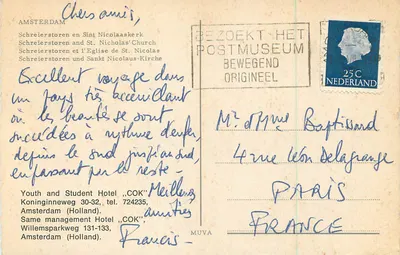 Chers amis,
AMSTERDAM
Schreierstoren en Sint Nicolaaskerk
Schreierstoren and St. Nicholas' Church
Schreierstoren et l'Eglise de St. Nicolas
Schreierstoren und Sankt Nicolaus-Kirche
Excellent voyage dans
un pays très accueillant
où les beautés se sont
succédées à rythme d'enfer,
depuis le sud jusqu'au sud,
en passant par le reste -
Meilleures
amitiés
Francis -
Youth and Student Hotel „COK”
Koninginneweg 30-32, tel. 724235,
Amsterdam (Holland).
Same management Hotel „COK”
Willemsparkweg 131-133,
Amsterdam (Holland).
MUVA
BEZOEKT HET
POSTMUSEUM
BEWEGEND
ORIGINEEL
25C
NEDERLAND
Mr et Mme Baptissard
4 rue Léon Delagrange
PARIS
FRANCE